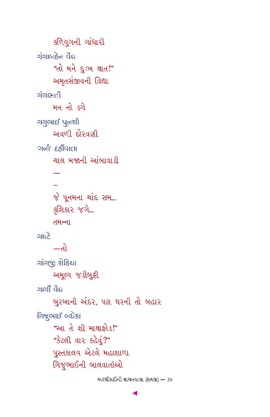 કળિયુગની ગાંધારી
ગંગાબહેન વૈદ્ય
"તો મને દુઃખ થાત!"
અમૃતસંજીવની વિદ્યા
ગંગાસતી
મન નો ડગે
ગગુભાઈ પુનશી
અવળી દોરવણી
'ગની' દહીંવાલા
ચાલ મજાની આંબાવાડી
—
–
જે પૂનમના ચાંદ સમ...
કૃષિકાર જગે...
તમન્ના
ગાલ્ટે
—તો
ગાંગજી શેઠિયા
અમૂલ્ય જડીબુટ્ટી
ગાર્ગી વૈદ્ય
બુરખાની અંદર, પણ ઘરની તો બહાર
ગિજુભાઈ બધેકા
"આ તે શી માથાફોડ!"
"કેટલી વાર કહેવું?"
પુસ્તકાલય એટલે મહાશાળા
ગિજુભાઈની બાલવાર્તાઓ
અરધીસદીની વાચનયાત્રા (સમગ્ર) — ૩૭